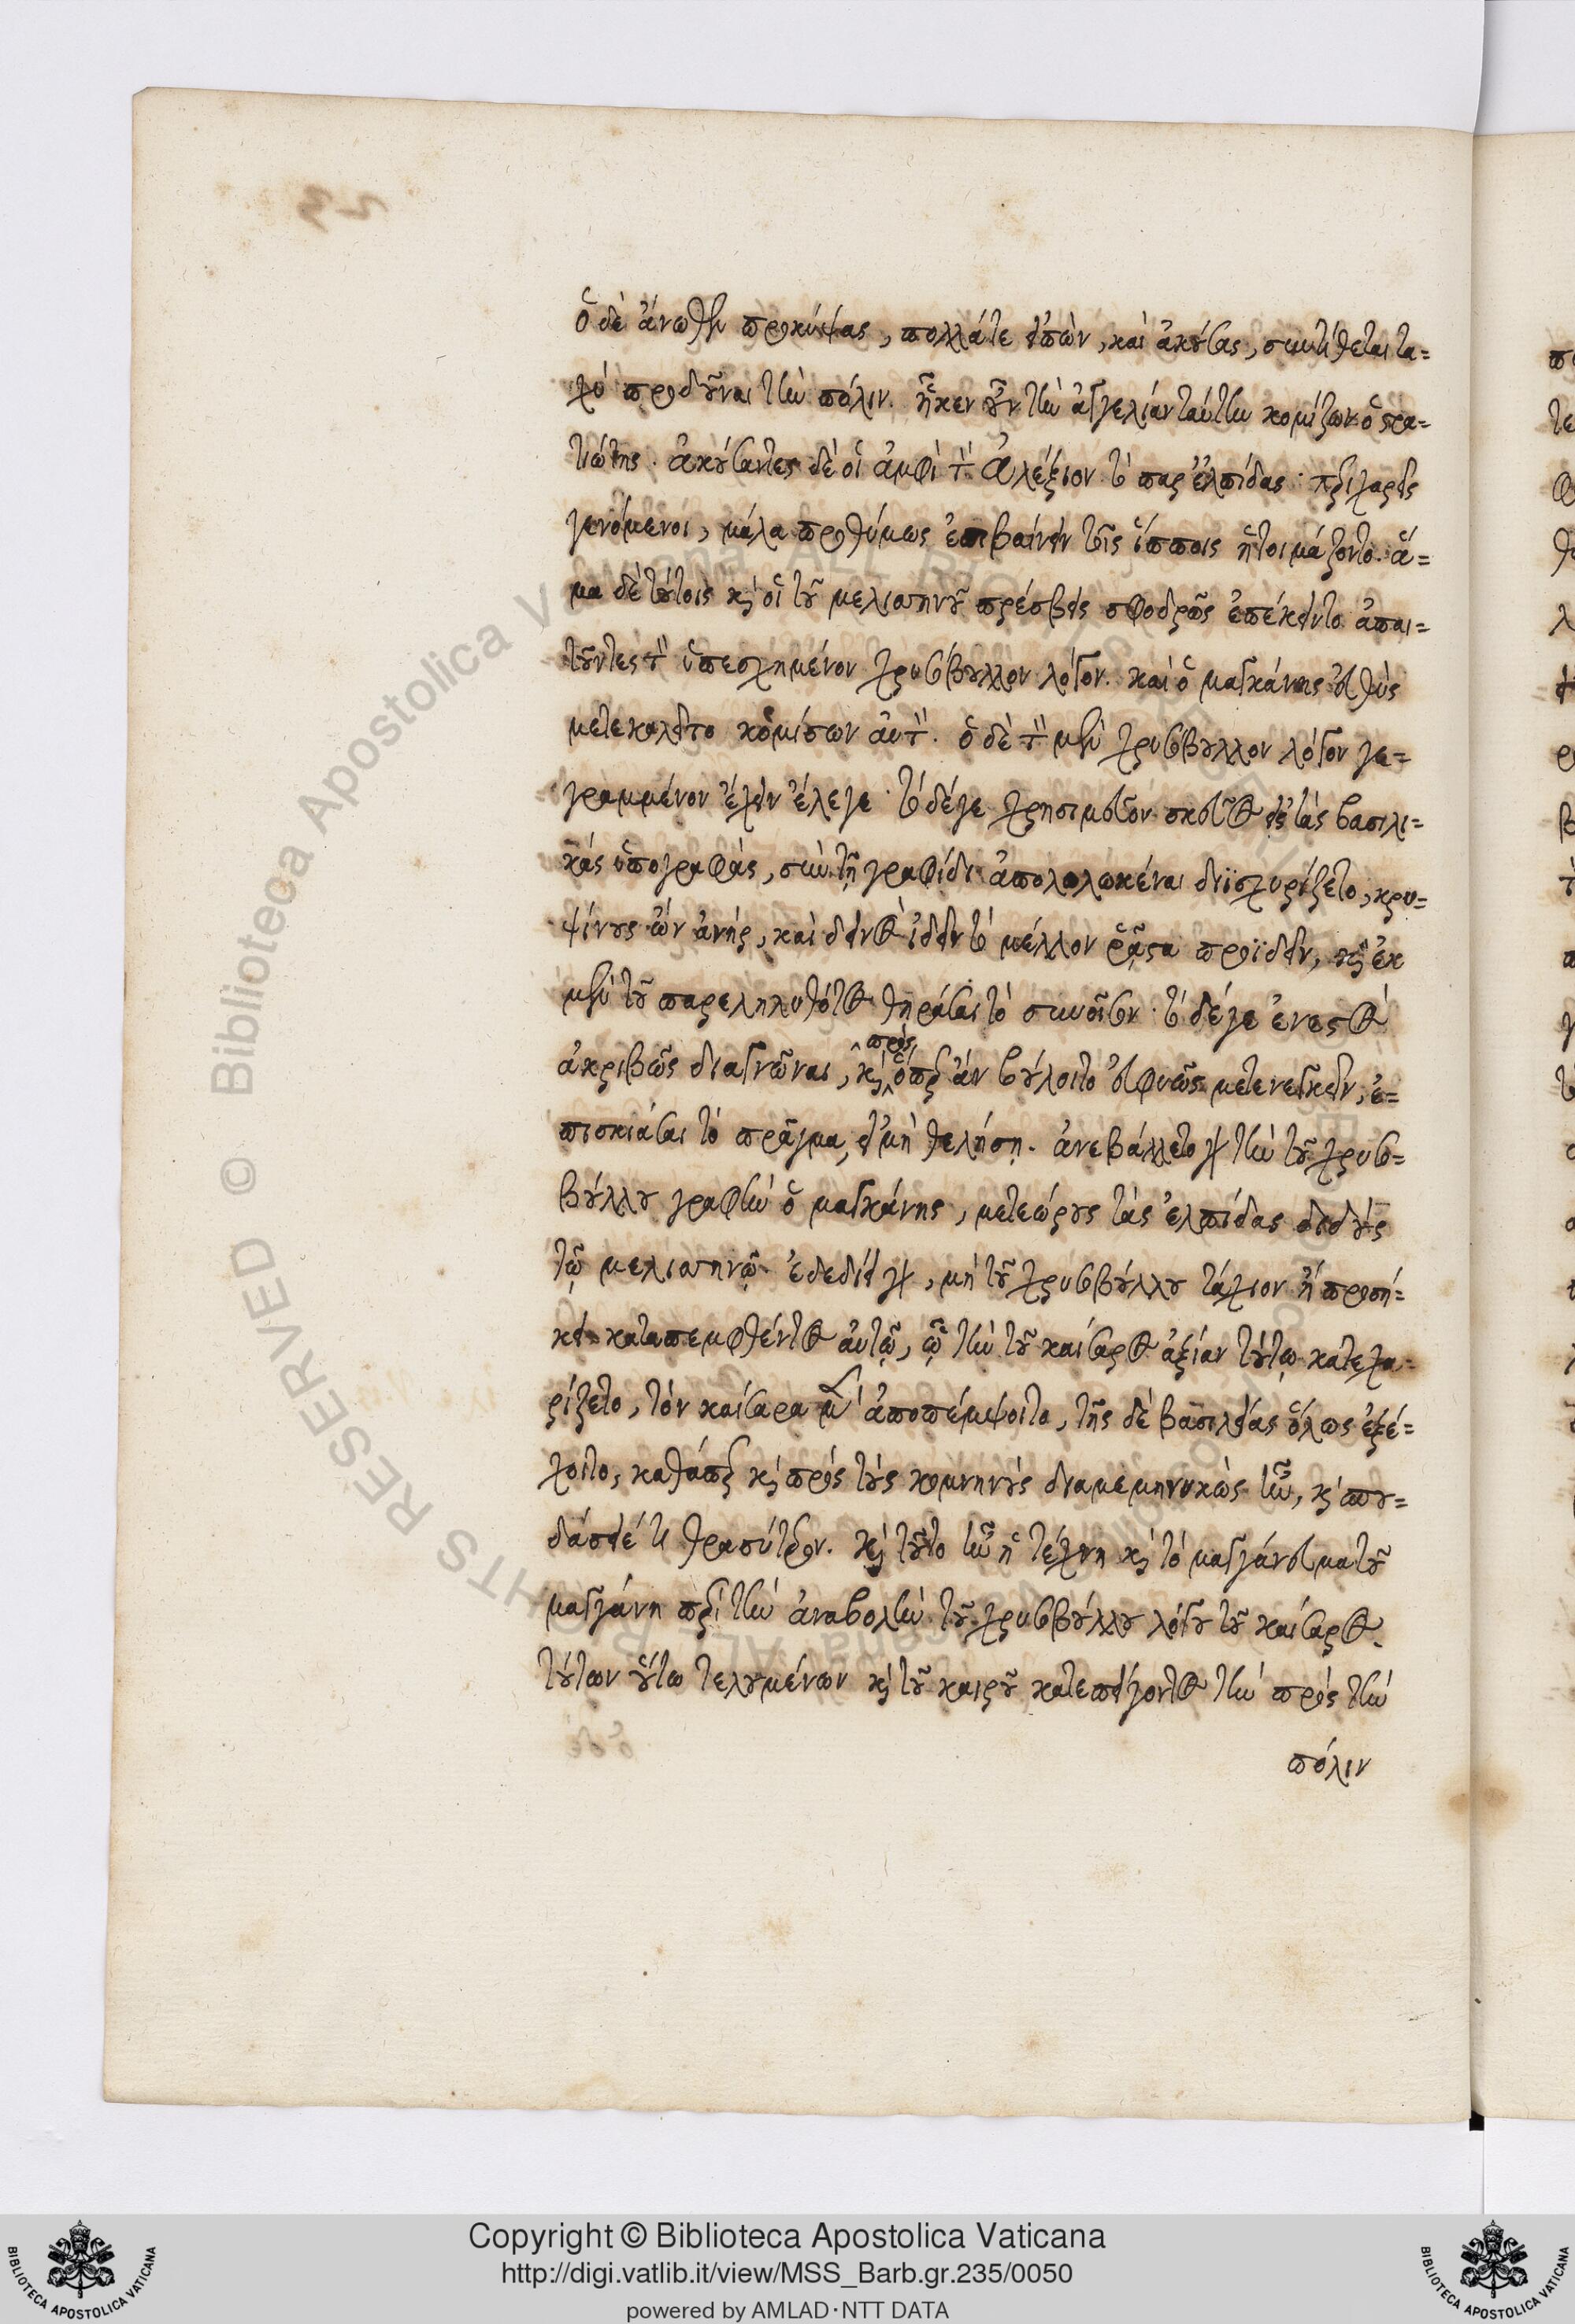 ὁ δὲ ἄνωθεν προκύψας, πολλά τε εἰπὼν, καὶ ἀκούσας, συντίθεται τα=
χύ προδοῦναι τὴν πόλιν. ἧκεν οὖν τὴν ἀγγελίαν ταύτην κομίζων ὁ στρα=
τιώτης. ἀκούσαντες δὲ οἱ ἀμφὶ τὸν Ἀλέξιον τὸ παρ' ἐλπίδας· περιχαρεῖς
γενόμενοι, μάλα προθύμως ἐπιβαίνειν τοῖς ἵπποις ἡτοιμάζοντο. ἅ=
μα δὲ τούτοις καὶ οἱ τοῦ μελισσηνοῦ πρέσβεις σφοδρῶς ἐπέκειντο ἀπαι=
τοῦντες τὸν ὑπεσχημένον χρυσόβουλλον λόγον. καὶ ὁ μαγκάνης εὐθὺς
μετεκαλεῖτο κομίσων αὐτόν. ὁ δὲ τὸν μὲν χρυσόβουλλον λόγον γε=
γραμμένον ἔχειν ἔλεγε· τὸ δέ γε χρησιμεῦον σκεῦος εἰς τὰς βασιλι=
κὰς ὑπογραφὰς, σὺν τῇ γραφίδι ἀπολωλωκέναι διϊσχυρίζετο, κρυ=
ψίνους ὢν ἀνήρ, καὶ δεινὸς ἰδεῖν τὸ μέλλον ῥᾷστα προϊδεῖν, καὶ ἐκ
μὲν τοῦ παρεληλυθότος θηρᾶσαι τὸ συνοῖσον· τὸ δέ γε ἐνεστὸς
ἀκριβῶς διαγνῶναι, καὶ πρὸς ὅπερ ἂν βούλοιτο εὐφυῶς μετενεγκεῖν, ἐ=
πισκιάσαι τὸ πρᾶγμα, εἰ μὴ θελήσῃ. ἀνεβάλλετο γὰρ τὴν τοῦ χρυσο=
βούλλου γραφὴν ὁ μαγκάνης, μετεώρους τὰς ἐλπίδας διδοὺς
τῷ μελισσηνῷ. ἐδεδίει γὰρ, μὴ τοῦ χρυσοβούλλου τάχιον ἢ προσή=
κει καταπεμφθέντος αὐτῷ, ᾧ τὴν τοῦ καίσαρος ἀξίαν τούτῳ κατεχα=
ρίζετο, τὸν καίσαρα μὲν ἀποπέμψοιτο, τῆς δὲ βασιλείας ὅλως ἐξέ=
χοιτο, καθάπερ καὶ πρὸς τοὺς κομνηνοὺς διαμεμηνυκὼς ἦν, καὶ σπου=
δάσειέ τι θρασύτερον. καὶ τοῦτο ἦν ἡ τέχνη καὶ τὸ μαγγάνευμα τοῦ
μαγγάνη περὶ τὴν ἀναβολὴν τοῦ χρυσοβούλλου λόγου τοῦ καίσαρος.
τούτων οὕτω τελουμένων καὶ τοῦ καιροῦ κατεπείγοντος τὴν πρὸς τὴν
πόλιν
Copyright © Biblioteca Apostolica Vaticana
http://digi.vatlib.it/view/MSS_Barb.gr.235/0050
powered by AMLAD·NTT DATA